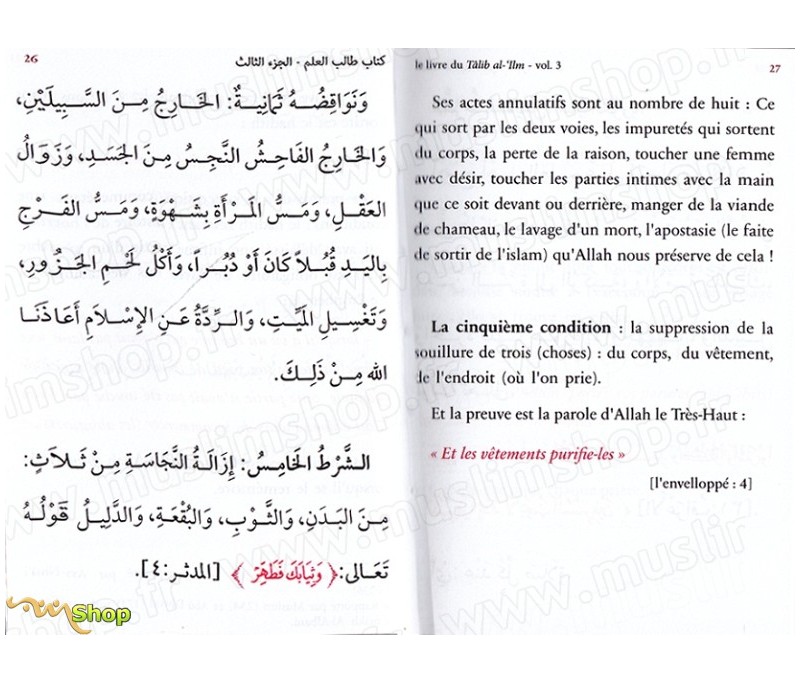 26
كتاب طالب العلم - الجزء الثالث
وَنَوَاقِضُهُ ثَمَانِيَةٌ: الخَارِجُ مِنَ السَّبِيلَيْنِ،
وَالخَارِجُ الفَاحِشُ النَّجِسُ مِنَ الجَسَدِ، وَزَوَالُ
العَقْلِ، وَمَسُّ المَرْأَةِ بِشَهْوَةٍ، وَمَسُّ الفَرْجِ
بِاليَدِ قُبُلاً كَانَ أَوْ دُبُراً، وَأَكْلُ لَحْمِ الجَزُورِ،
وَتَغْسِيلِ المَيِّتِ، وَالرِّدَّةُ عَنِ الإِسْلَامِ أَعَاذَنَا
الله مِنْ ذَلِكَ.
الشَّرْطُ الخَامِسُ: إِزَالَةُ النَّجَاسَةِ مِنْ ثَلَاثٍ:
مِنَ البَدَنِ، وَالثَّوْبِ، وَالبُقْعَةِ، وَالدَّلِيلُ قَوْلُهُ
تَعَالَى: ﴿ وَثِيَابَكَ فَطَهِّرْ ﴾ [المدثر:٤].
le livre du Tâlib al-'Ilm - vol. 3
27
Ses actes annulatifs sont au nombre de huit : Ce
qui sort par les deux voies, les impuretés qui sortent
du corps, la perte de la raison, toucher une femme
avec désir, toucher les parties intimes avec la main
que ce soit devant ou derrière, manger de la viande
de chameau, le lavage d'un mort, l'apostasie (le faite
de sortir de l'islam) qu'Allah nous préserve de cela !
La cinquième condition : la suppression de la
souillure de trois (choses) : du corps, du vêtement,
de l'endroit (où l'on prie).
Et la preuve est la parole d'Allah le Très-Haut :
« Et les vêtements purifie-les »
[l'enveloppé : 4]
Shop
www.muslimshop.fr